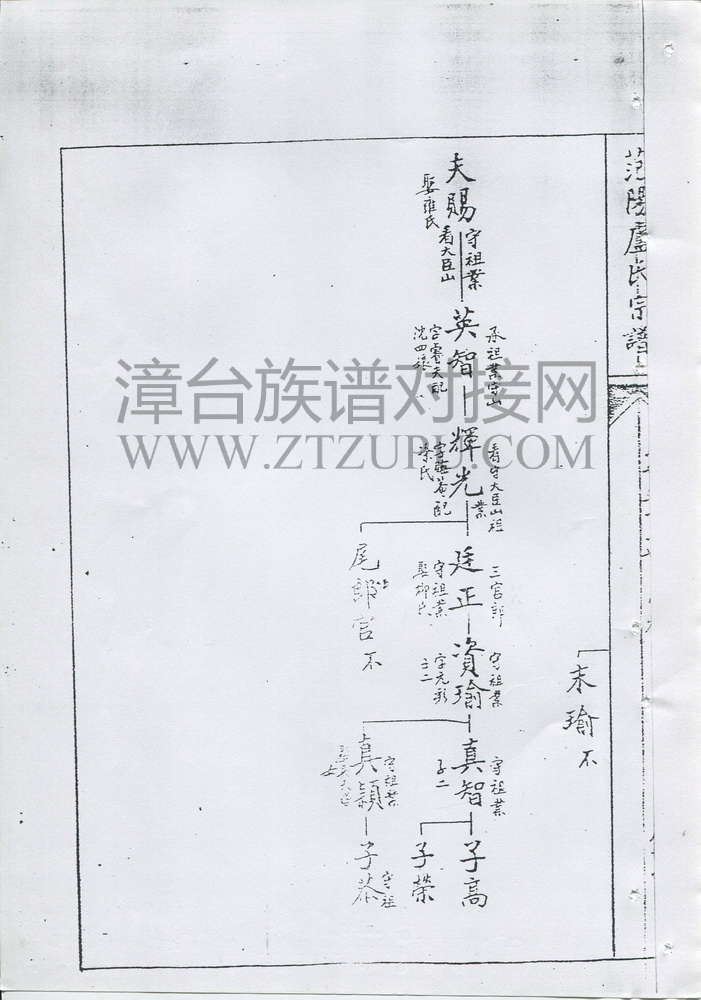 范陽盧氏宗譜
末瑜 不
夫賜
守祖業
看大臣山
娶雍氏
英智
承祖業守山
沈四娘
輝光
看守大臣山祖
業
廷正
三官郎
守祖業
娶柳氏
尾郎官 不
資瑜
守祖業
字元彩
子二
真智
守祖業
子二
真穎
守祖業
子高
子榮
子恭
守祖
漳台族谱对接网
WWW.ZTZUPU.COM